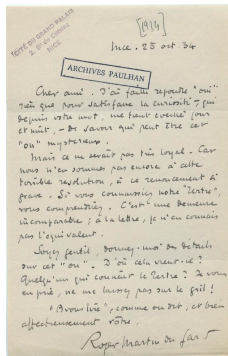 [1934]
HÔTEL DU GRAND PALAIS
2, Bd de Cimiez
NICE
Nice. 25 oct. 34
ARCHIVES PAULHAN
Cher ami. J'ai failli répondre "oui"
rien que pour satisfaire la curiosité – qui
depuis votre mot, me tient éveillé jour
et nuit, – de savoir qui peut être cet
"on" mystérieux.
Mais ce ne serait pas très loyal. Car
nous n'en sommes pas encore à cette
terrible révolution, à ce renoncement si
grave. Si vous connaissiez notre "Tertre",
vous comprendriez. C'est une demeure
incomparable ; à la lettre, je n'en connais
pas l'équivalent.
Soyez gentil, donnez-moi des détails
sur cet "on". D'où cela vient-il ?
Quelqu'un qui connaît le Tertre ? Je vous
en prie, ne me laissez pas sur le gril !
comme on dit, et bien
affectueusement vôtre.
Roger Martin du Gard